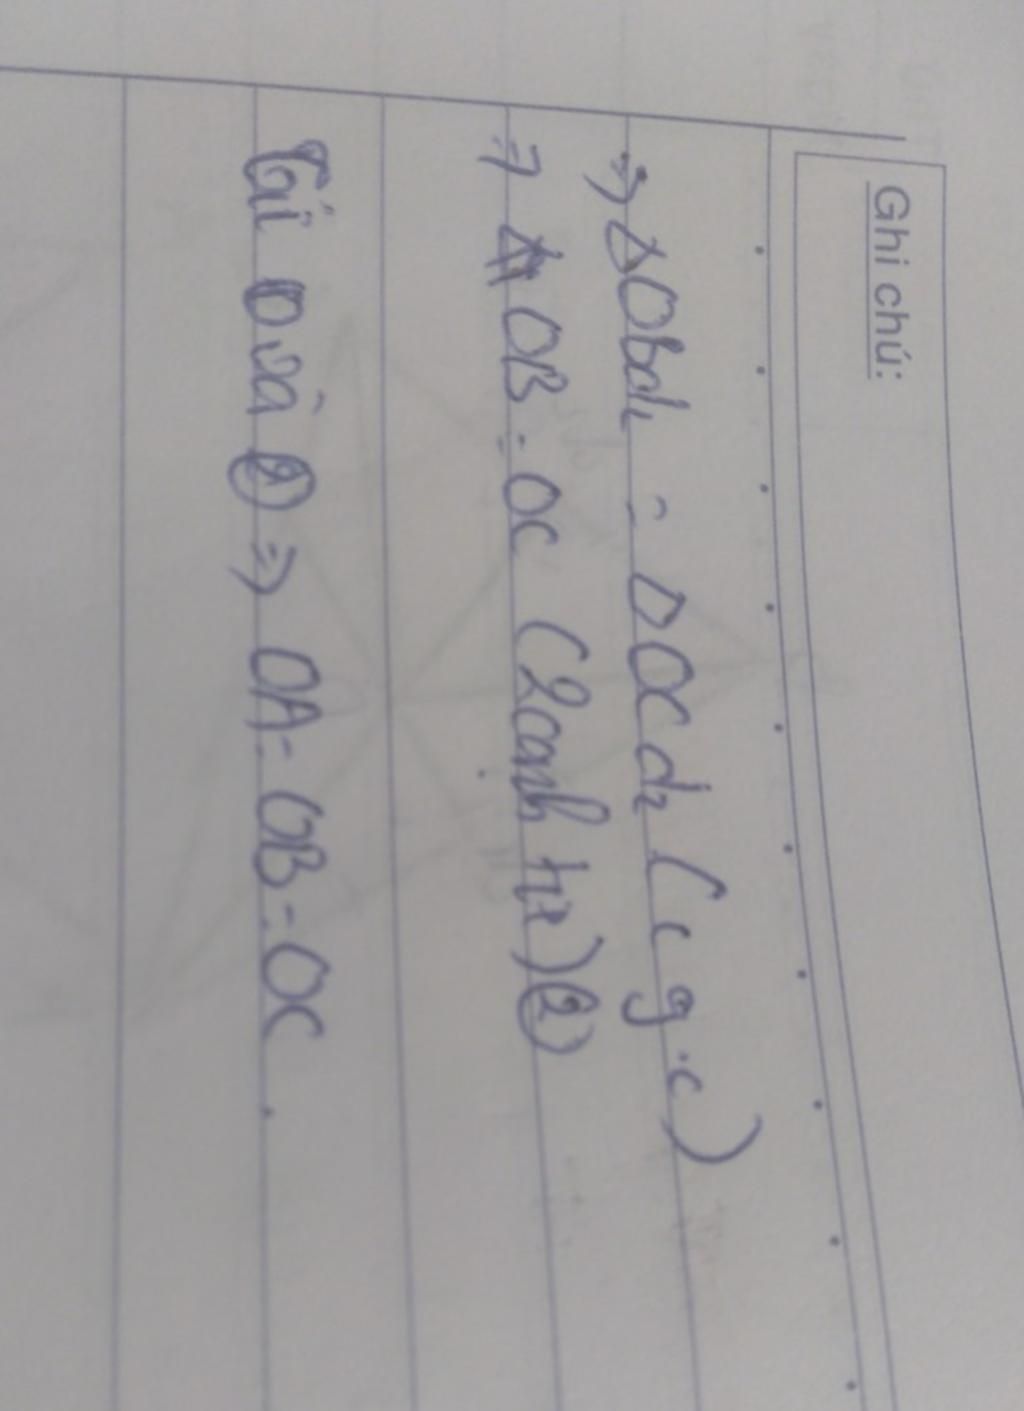 Ghi chú:
=> ΔObd₁ = ΔOCd₂ (c g.c)
=> OB = OC (2 cạnh tư) ②
Từ ① và ② => OA = OB = OC.